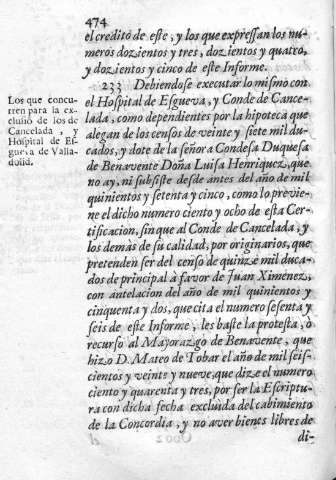 474
el credito de este, y los que expressan los nu-
meros dozientos y tres, dozientos y quatro,
y dozientos y cinco de este Informe.
233 Debiendose executar lo mismo con
el Hospital de Esgueva, y Conde de Cance-
lada, como dependientes por la hipoteca que
alegan de los censos de veinte y siete mil du-
cados, y dote de la señora Condesa Duquesa
de Benavente Doña Luisa Henriquez, que
no ay, ni subsiste desde antes del año de mil
quinientos y setenta y cinco, como lo previe-
ne el dicho numero ciento y ocho de esta Cer-
tificacion, sin que al Conde de Cancelada, y
los demás de su calidad, por originarios, que
pretenden ser del censo de quinze mil duca-
dos de principal à favor de Juan Ximenez,
con antelacion del año de mil quinientos y
cinquenta y dos, que cita el numero sesenta y
seis de este Informe, les baste la protesta, ò
recurso al Mayorazgo de Benavente, que
hizo D. Mateo de Tobar el año de mil seis-
cientos y veinte y nueve, que dize el numero
ciento y quarenta y tres, por ser la Escriptu-
ra con dicha fecha excluida del cabimiento
de la Concordia, y no aver bienes libres de
di-
Los que concu-
rren para la ex-
clusiõ de los de
Cancelada, y
Hospital de Es-
gueva de Valla-
dolid.